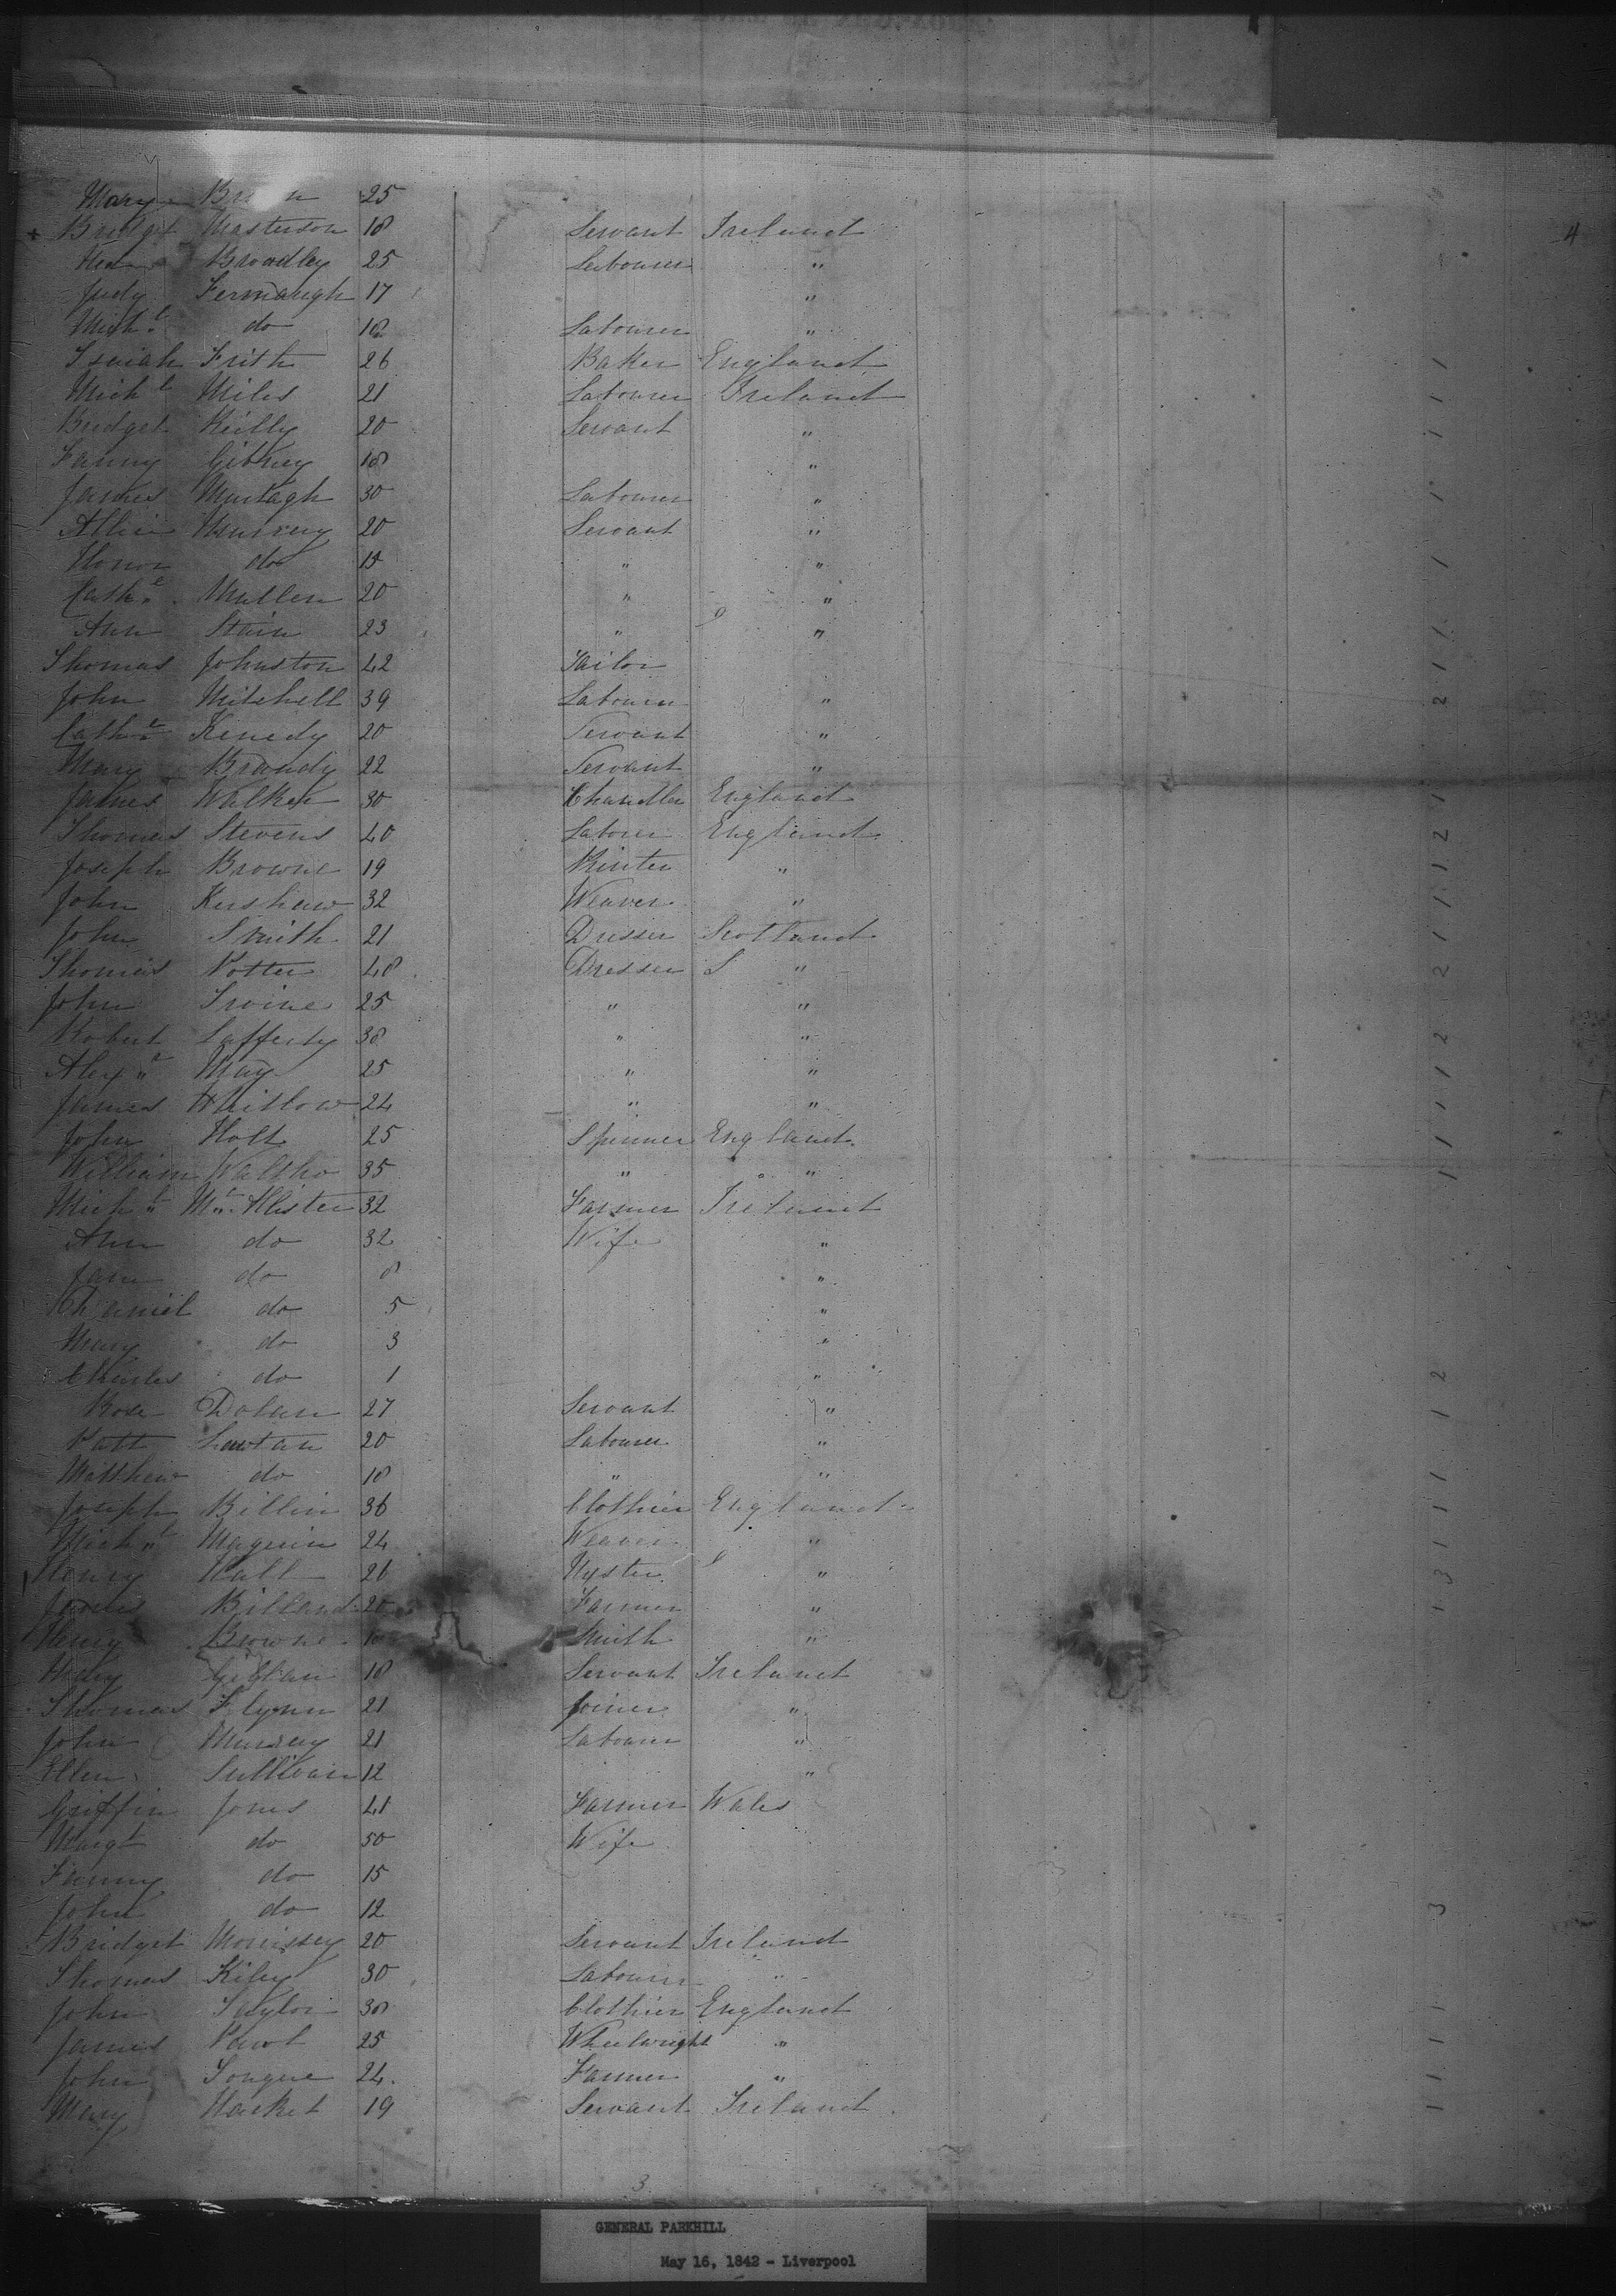 Mary 25
Bridget Masterson 18 Servant Ireland
4
Broadley 25 Labourer "
Judy Fermaugh 17 "
Mich.l do 18 Labourer "
Isaiah Frith 26 Baker England 1
Mich.l Miles 21 Labourer Ireland 1
Bridget Reilly 20 Servant " 1
Fanny Gibney 18 "
James Murtagh 30 Labourer " 1
Murray 20 Servant "
Honor do 15 " " 1
Cath.e Mullen 20 " "
Ann Stain 23 " " 1
Thomas Johnston 42 Tailor 1
John Mitchell 39 Labourer " 2
Cath.e Kenedy 20 Servant "
Mary Brandy 22 Servant "
James Walker 30 Chandler England 1
Thomas Stevens 40 Laborer England 2
Joseph Browne 19 Printer " 1
John Kershaw 32 Weaver " 1
John Smith 21 Dresser Scotland 1
Thomas Potter 48 Dresser S " 2
John Irvine 25 " "
Robert Lafferty 38 " " 2
Alex.r May 25 " " 1
James Whitlow 24 " " 1
John Holt 25 Spinner England 1
William Waltho 35 " " 1
Mich.l Mc.Allister 32 Farmer Ireland
Ann do 32 Wife "
Jane do 8 "
do 5 "
Mary do 3 "
Charles do 1 " 2
Rose Dolan 27 Servant " 1
Patt Lawtan 20 Labourer "
Matthew do 18 " " 1
Joseph Billin 36 Clothier England 1
Mich.l Maguin 24 Weaver " 1
Henry Hall 26 " 3
James Billand 20 Farmer " 1
Henry Browne Smith "
18 Servant Ireland
Thomas Flynn 21 Joiner "
John Murray 21 Labourer "
Ellen Sullivan 12 "
Griffin Jones 41 Farmer Wales
Margt do 50 Wife
Fanny do 15
John do 12 3
Bridget Morrissey 20 Servant Ireland
Thomas Kiley 30 Labourer "
John Taylor 38 Clothier England 1
James 25 Wheelwright " 1
John Tongue 24. Farmer " 1
Mary Hacket 19 Servant Ireland 1
3
GENERAL PARKHILL
May 16, 1842 - Liverpool